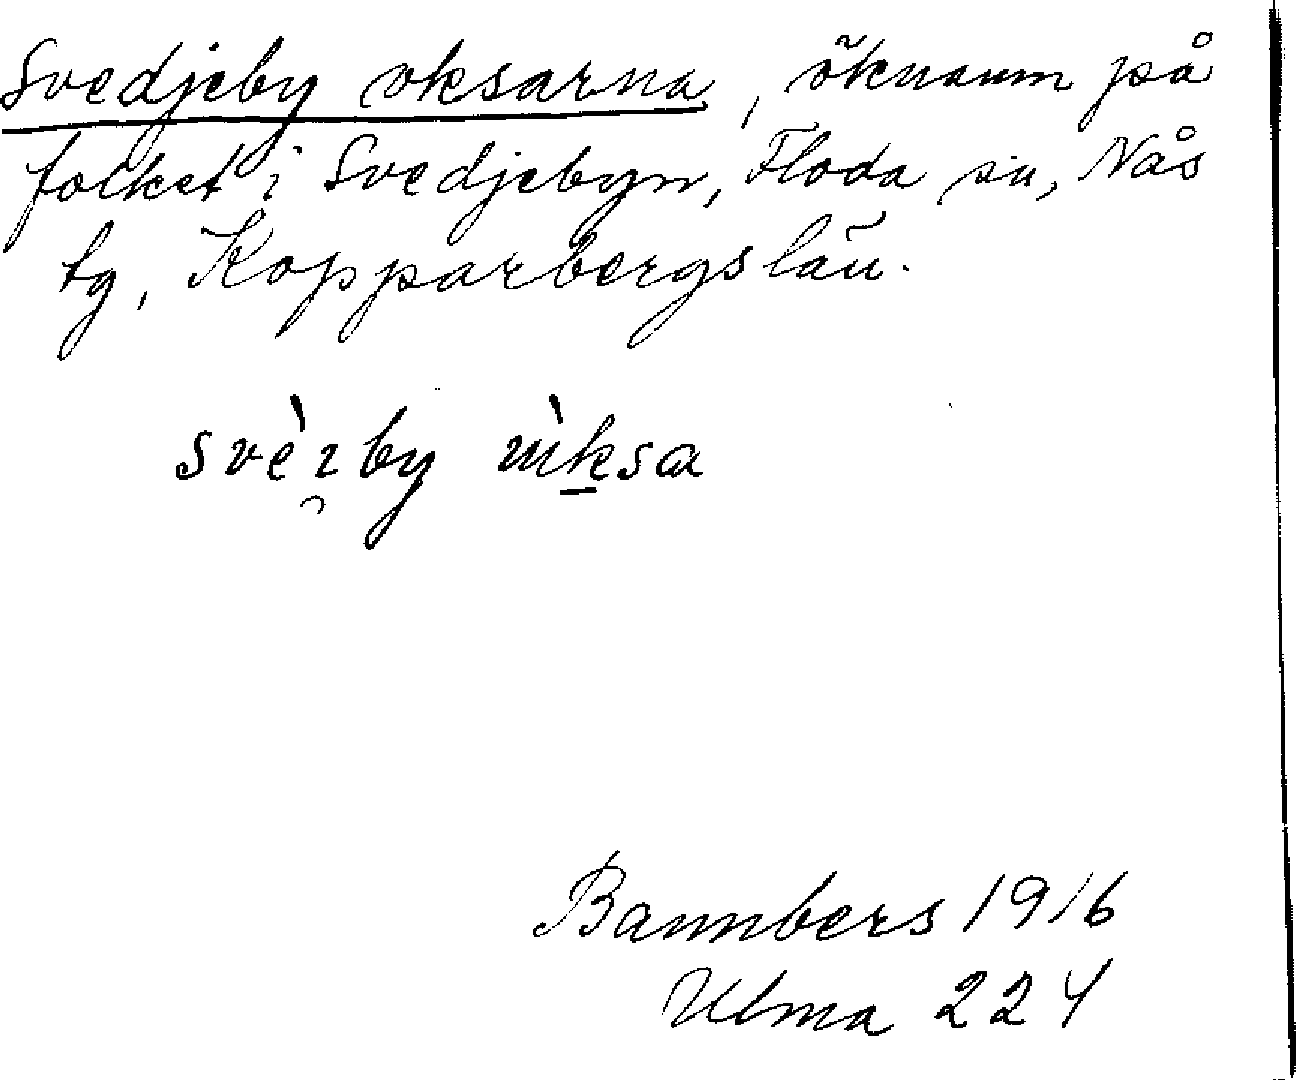 Svedjeby oksarna, öknamn på
folket i Svedjebyn, Floda sn, Nås
tg, Kopparbergs län.
Bannbers 1916
Ulma 224